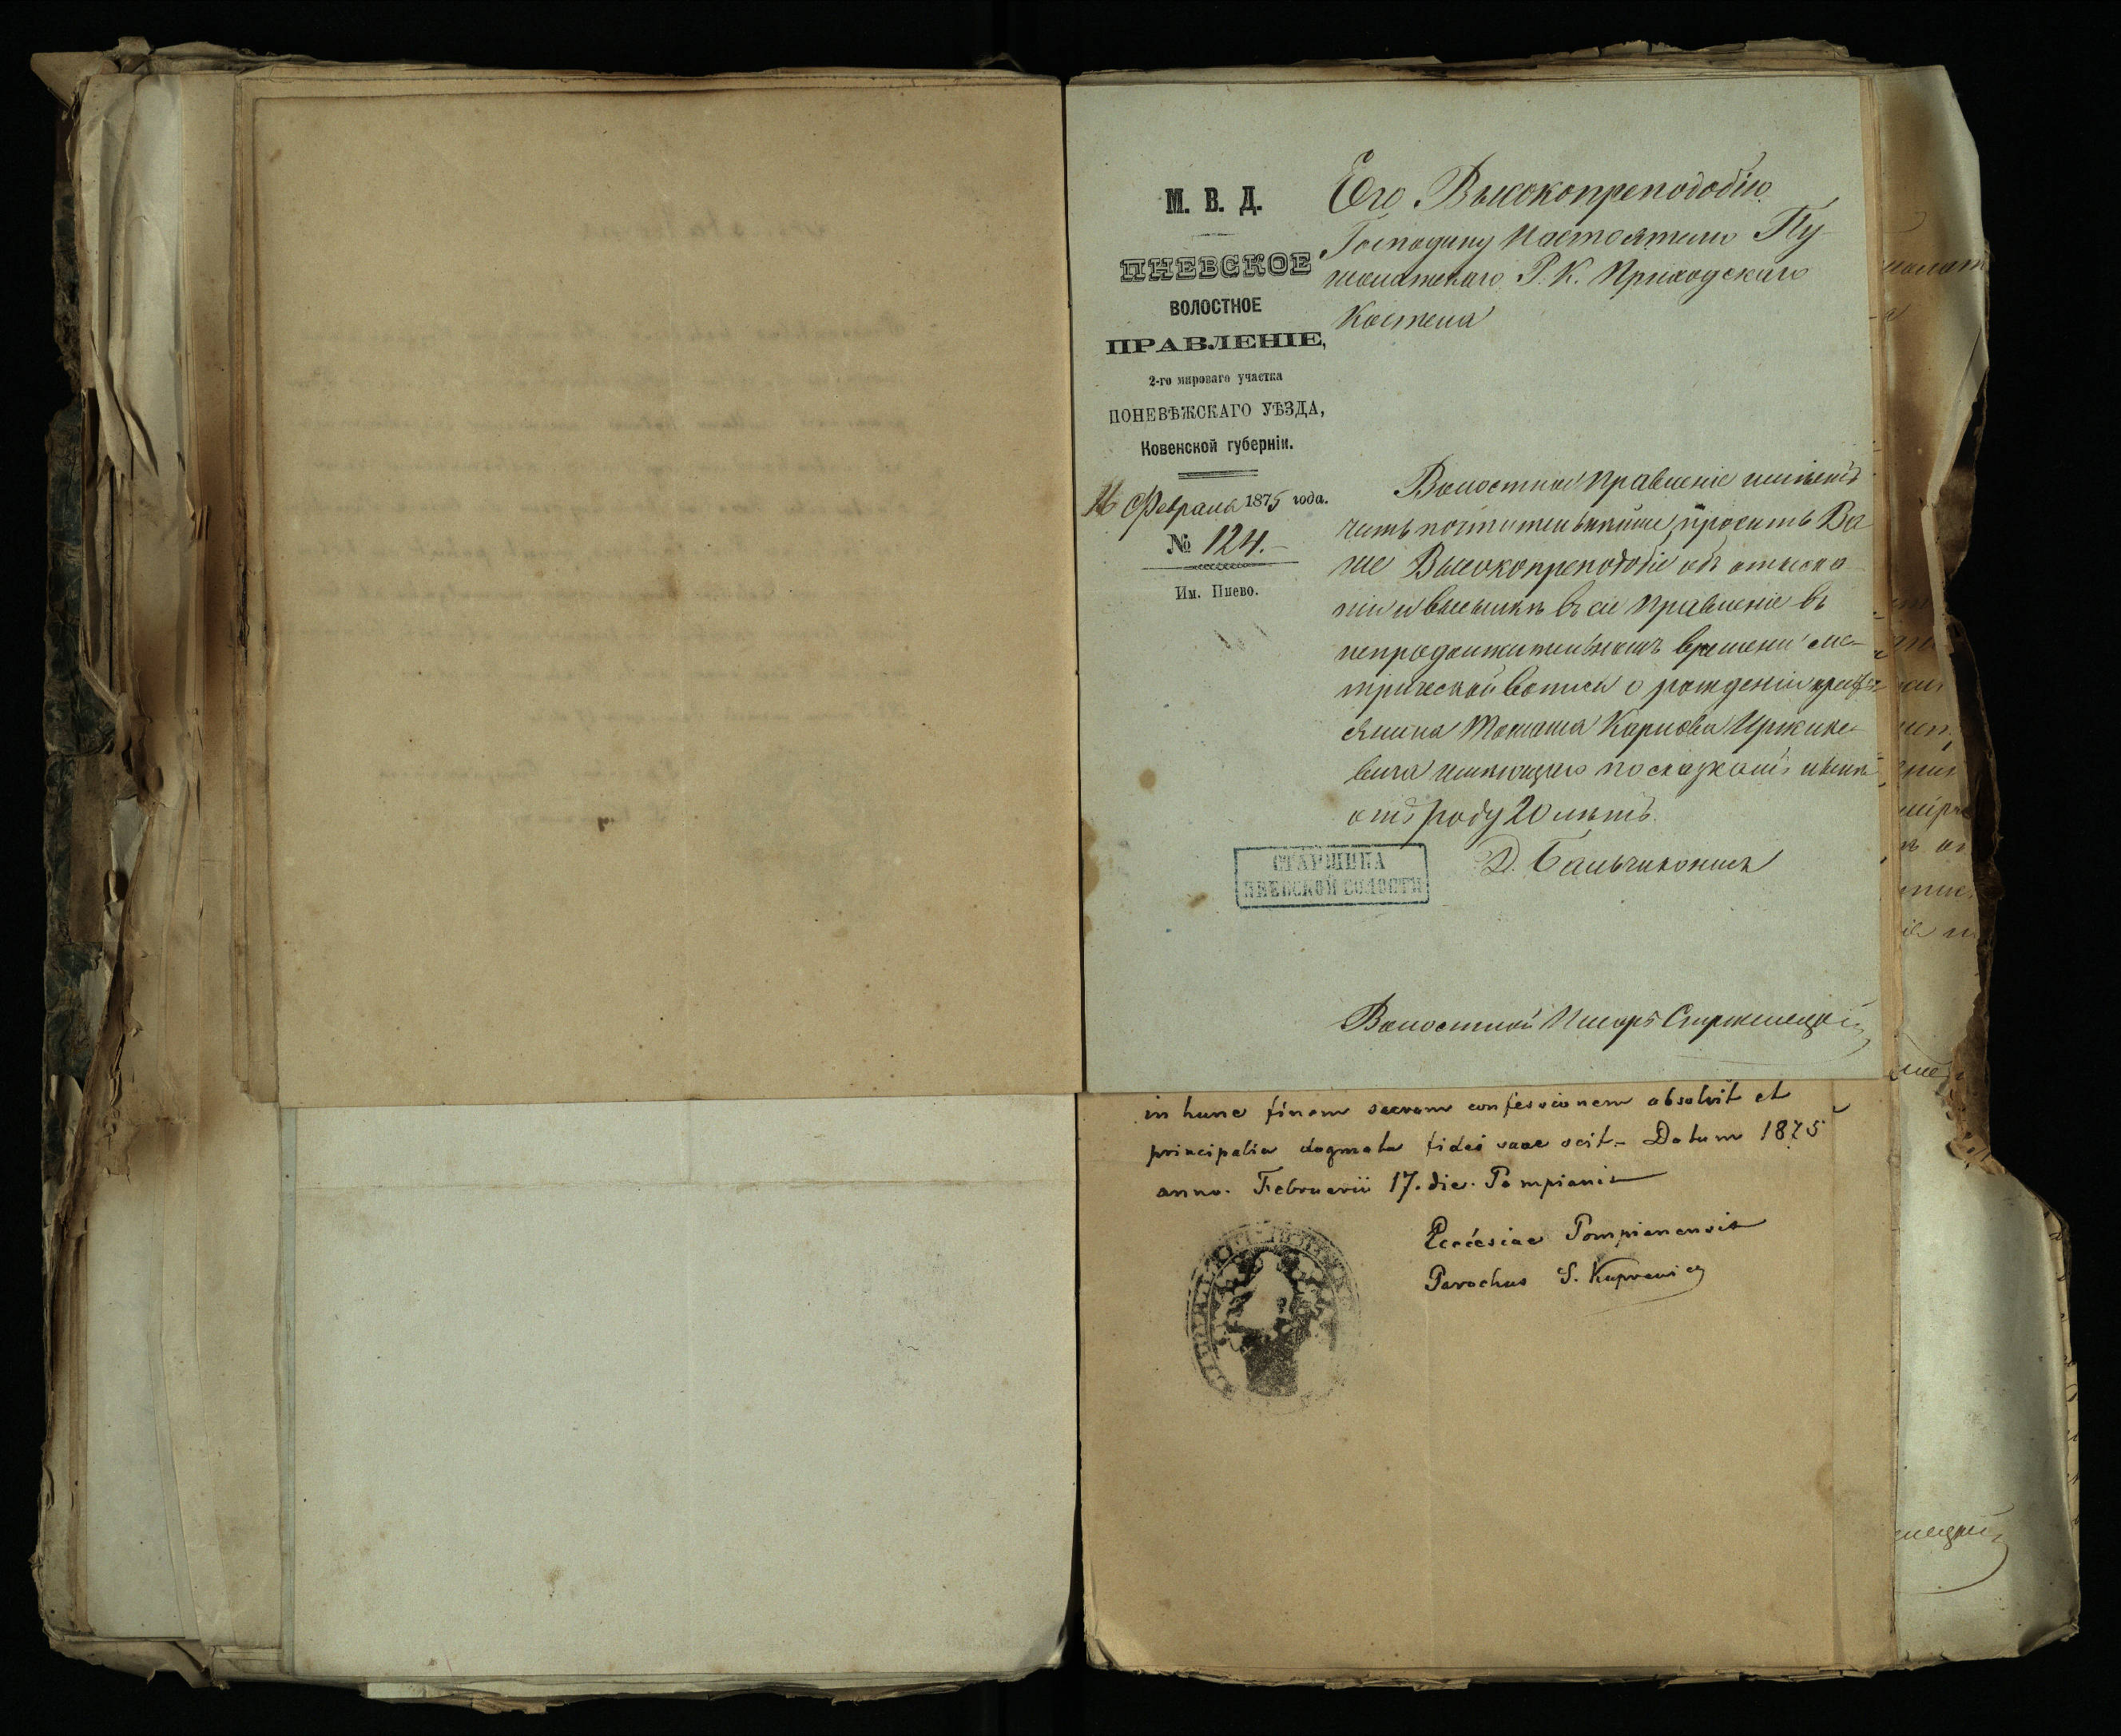 М. В. Д.
ПНЕВСКОЕ
ВОЛОСТНОЕ
ПРАВЛЕНІЕ,
2-го мироваго участка
ПОНЕВѢЖСКАГО УѢЗДА,
Ковенской губерніи.
16 Февраля 1875 года.
№ 124.
Им. Пнево.
Его Высокопреподобію
Господину Настоятелю Пу-
шолатскаго Р. К. Приходскаго
Костела
Волостное Правленіе имѣетъ
честь почтительнѣйше просить Ва
ше Высокопреподобіе объ отыска
ніи и высылкѣ въ сіе Правленіе въ
непродолжительномъ времени ме-
трической выписи о рожденіи крестъ
янина Томаша Карлова Иржике-
вича имѣющаго по сказкамъ нынѣ
отъ роду 20 лѣтъ.
СТАРШИНА
ПНЕВСКОЙ ВОЛОСТИ
Д. Бальчиконисъ
Волостной Писарь
in hunc finem sacram confessionem absolvit et
principalia dogmata fidei suae scit.- Datum 1875
anno. Februarii 17. die. Pompianis
Ecclesiae Pompianensis
Parochus S. Kuprewicz